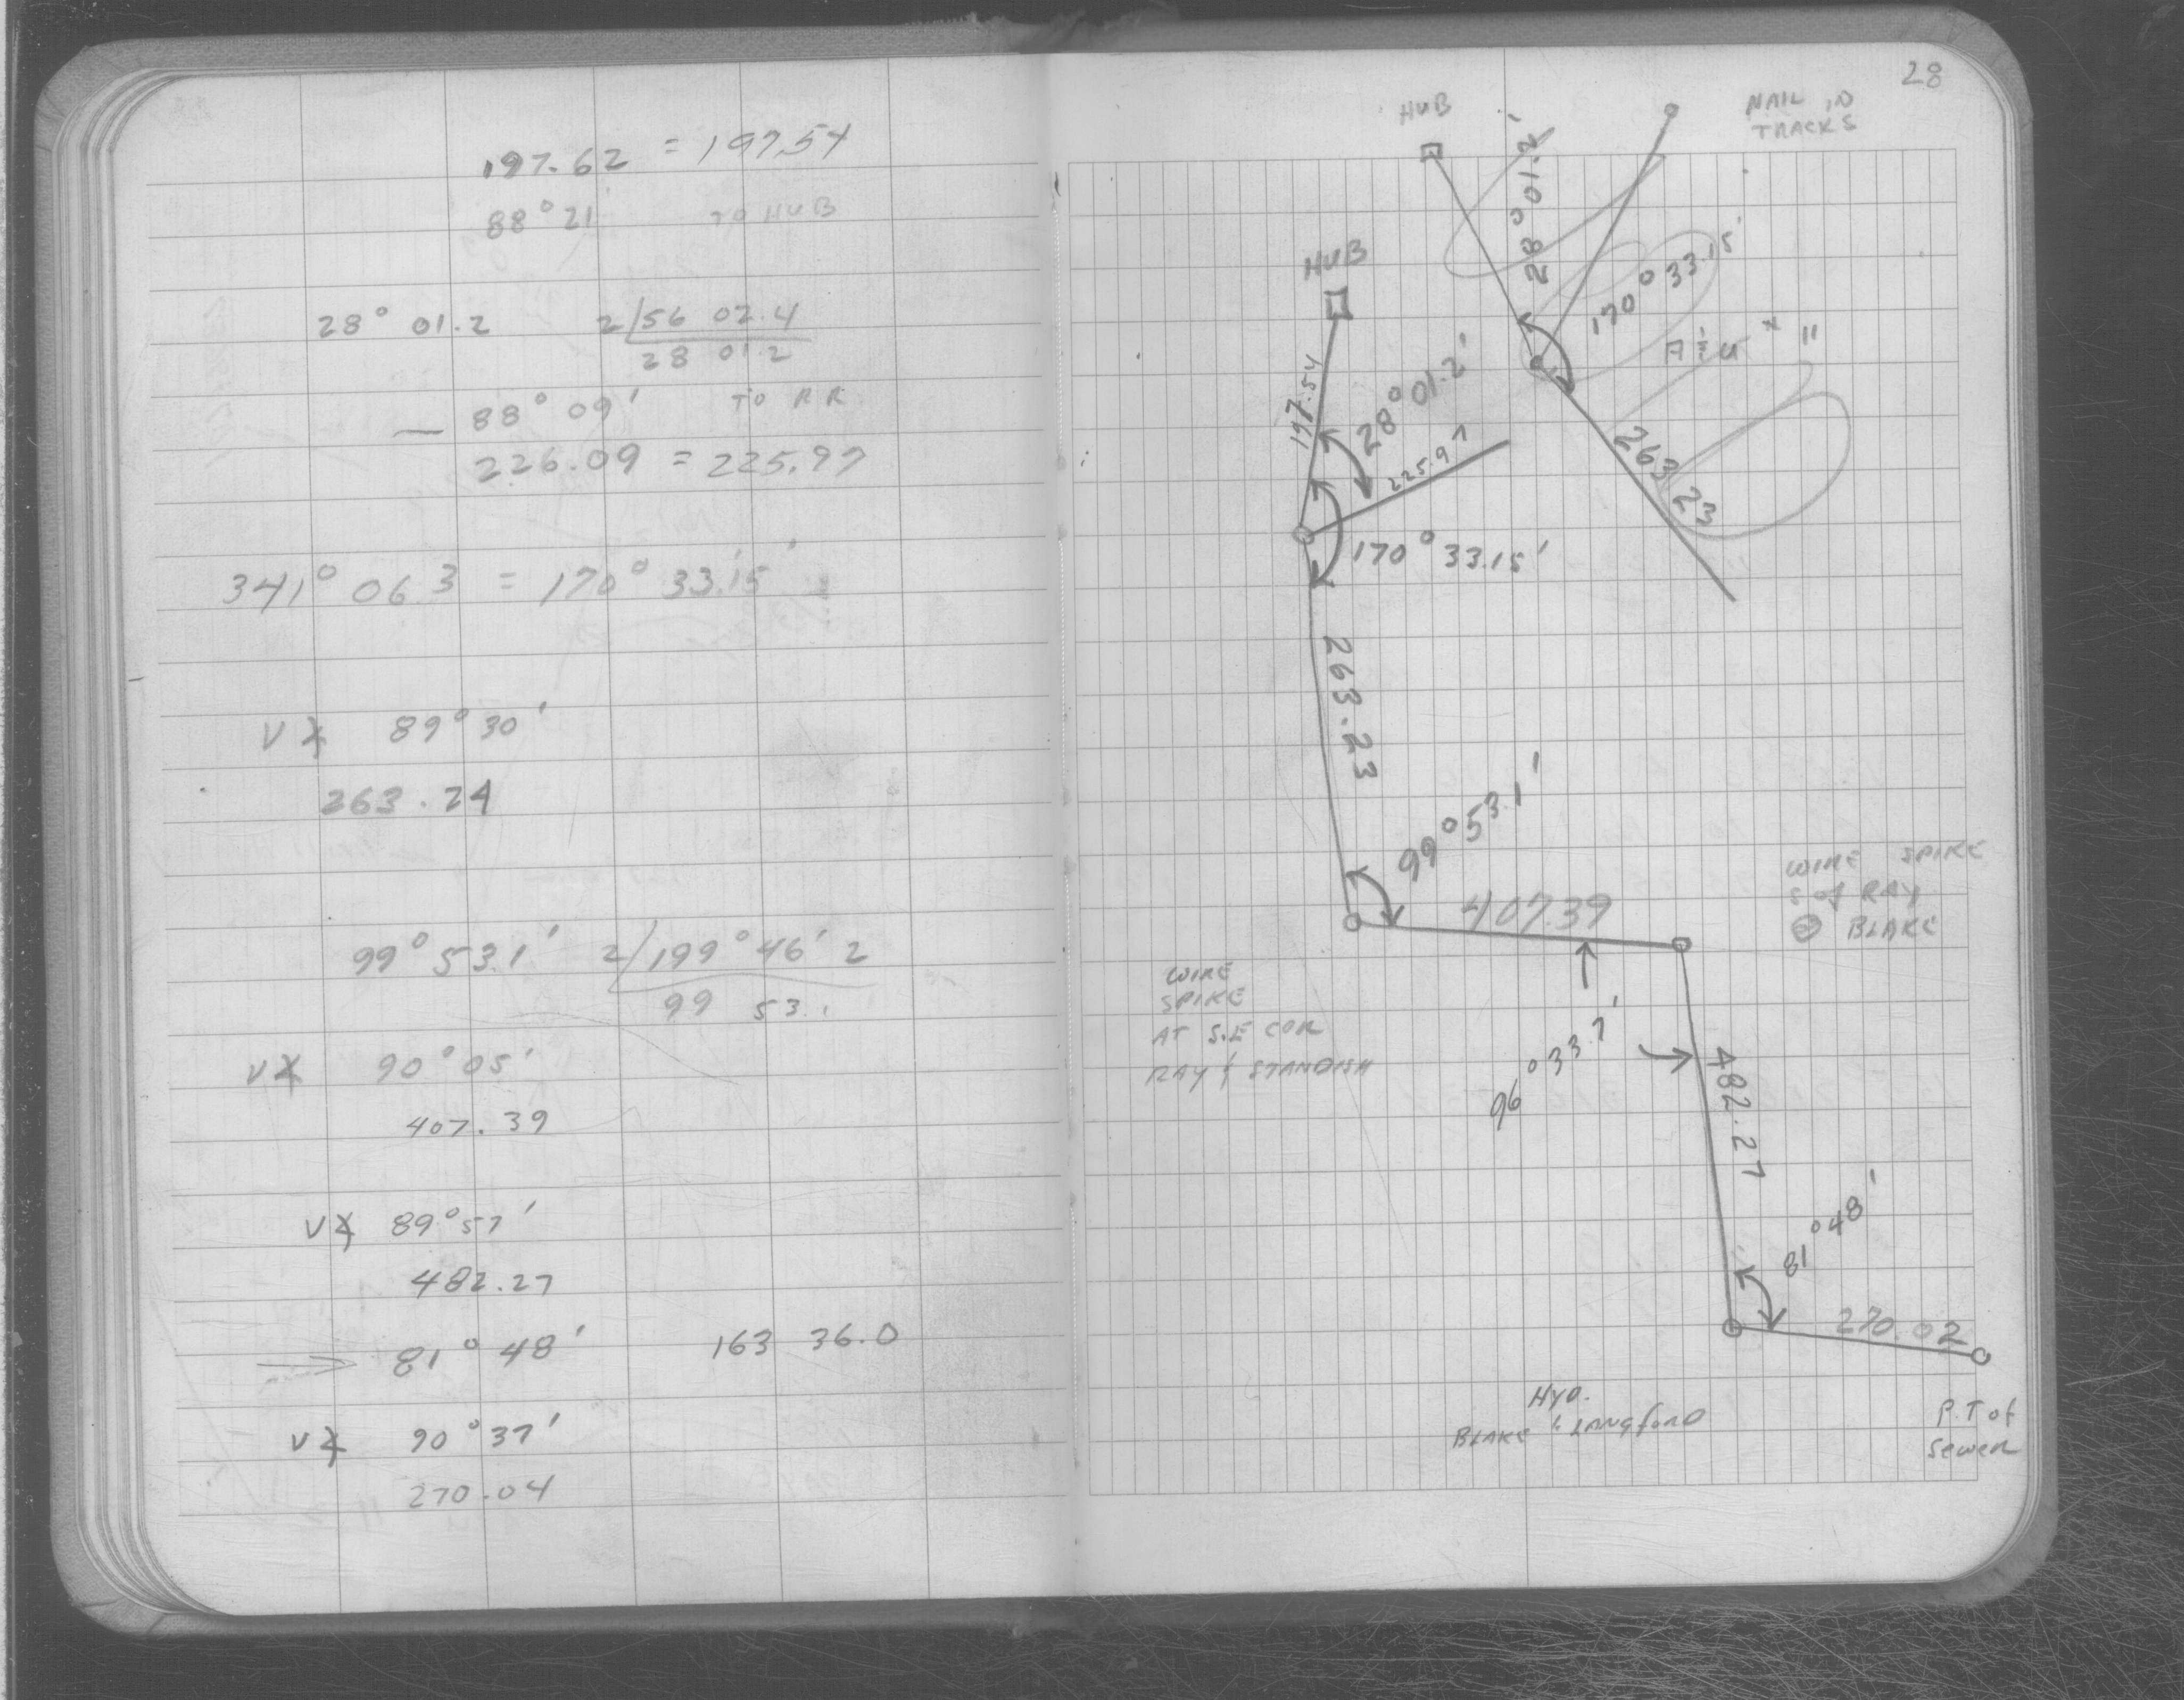 197.62 = 197.54
88° 21 TO HUB
28° 01.2 2/56 02.4
28 01.2
— 88° 09' TO RR
226.09 = 225.97
341° 06.3 = 170° 33.15'
V∡ 89° 30'
263.24
99° 53.1' 2/199° 46' 2
99 53.1
V∡ 90° 05'
407.39
V∡ 89° 57'
482.27
81° 48' 163 36.0
V∡ 90° 37'
270.04
28
HUB
NAIL IN
TRACKS
28° 01.2'
170° 33.15'
263.23
HUB
197.54
28° 01.2'
225.97
170° 33.15'
263.23
99° 53.1'
407.39
WIRE SPIKE
S of RAY
@ BLAKE
WIRE
SPIKE
AT S.E COR
RAY & STANDISH
96° 33.7'
482.27
81° 48'
270.02
HYD.
BLAKE & LANGFORD
P.T of
Sewer